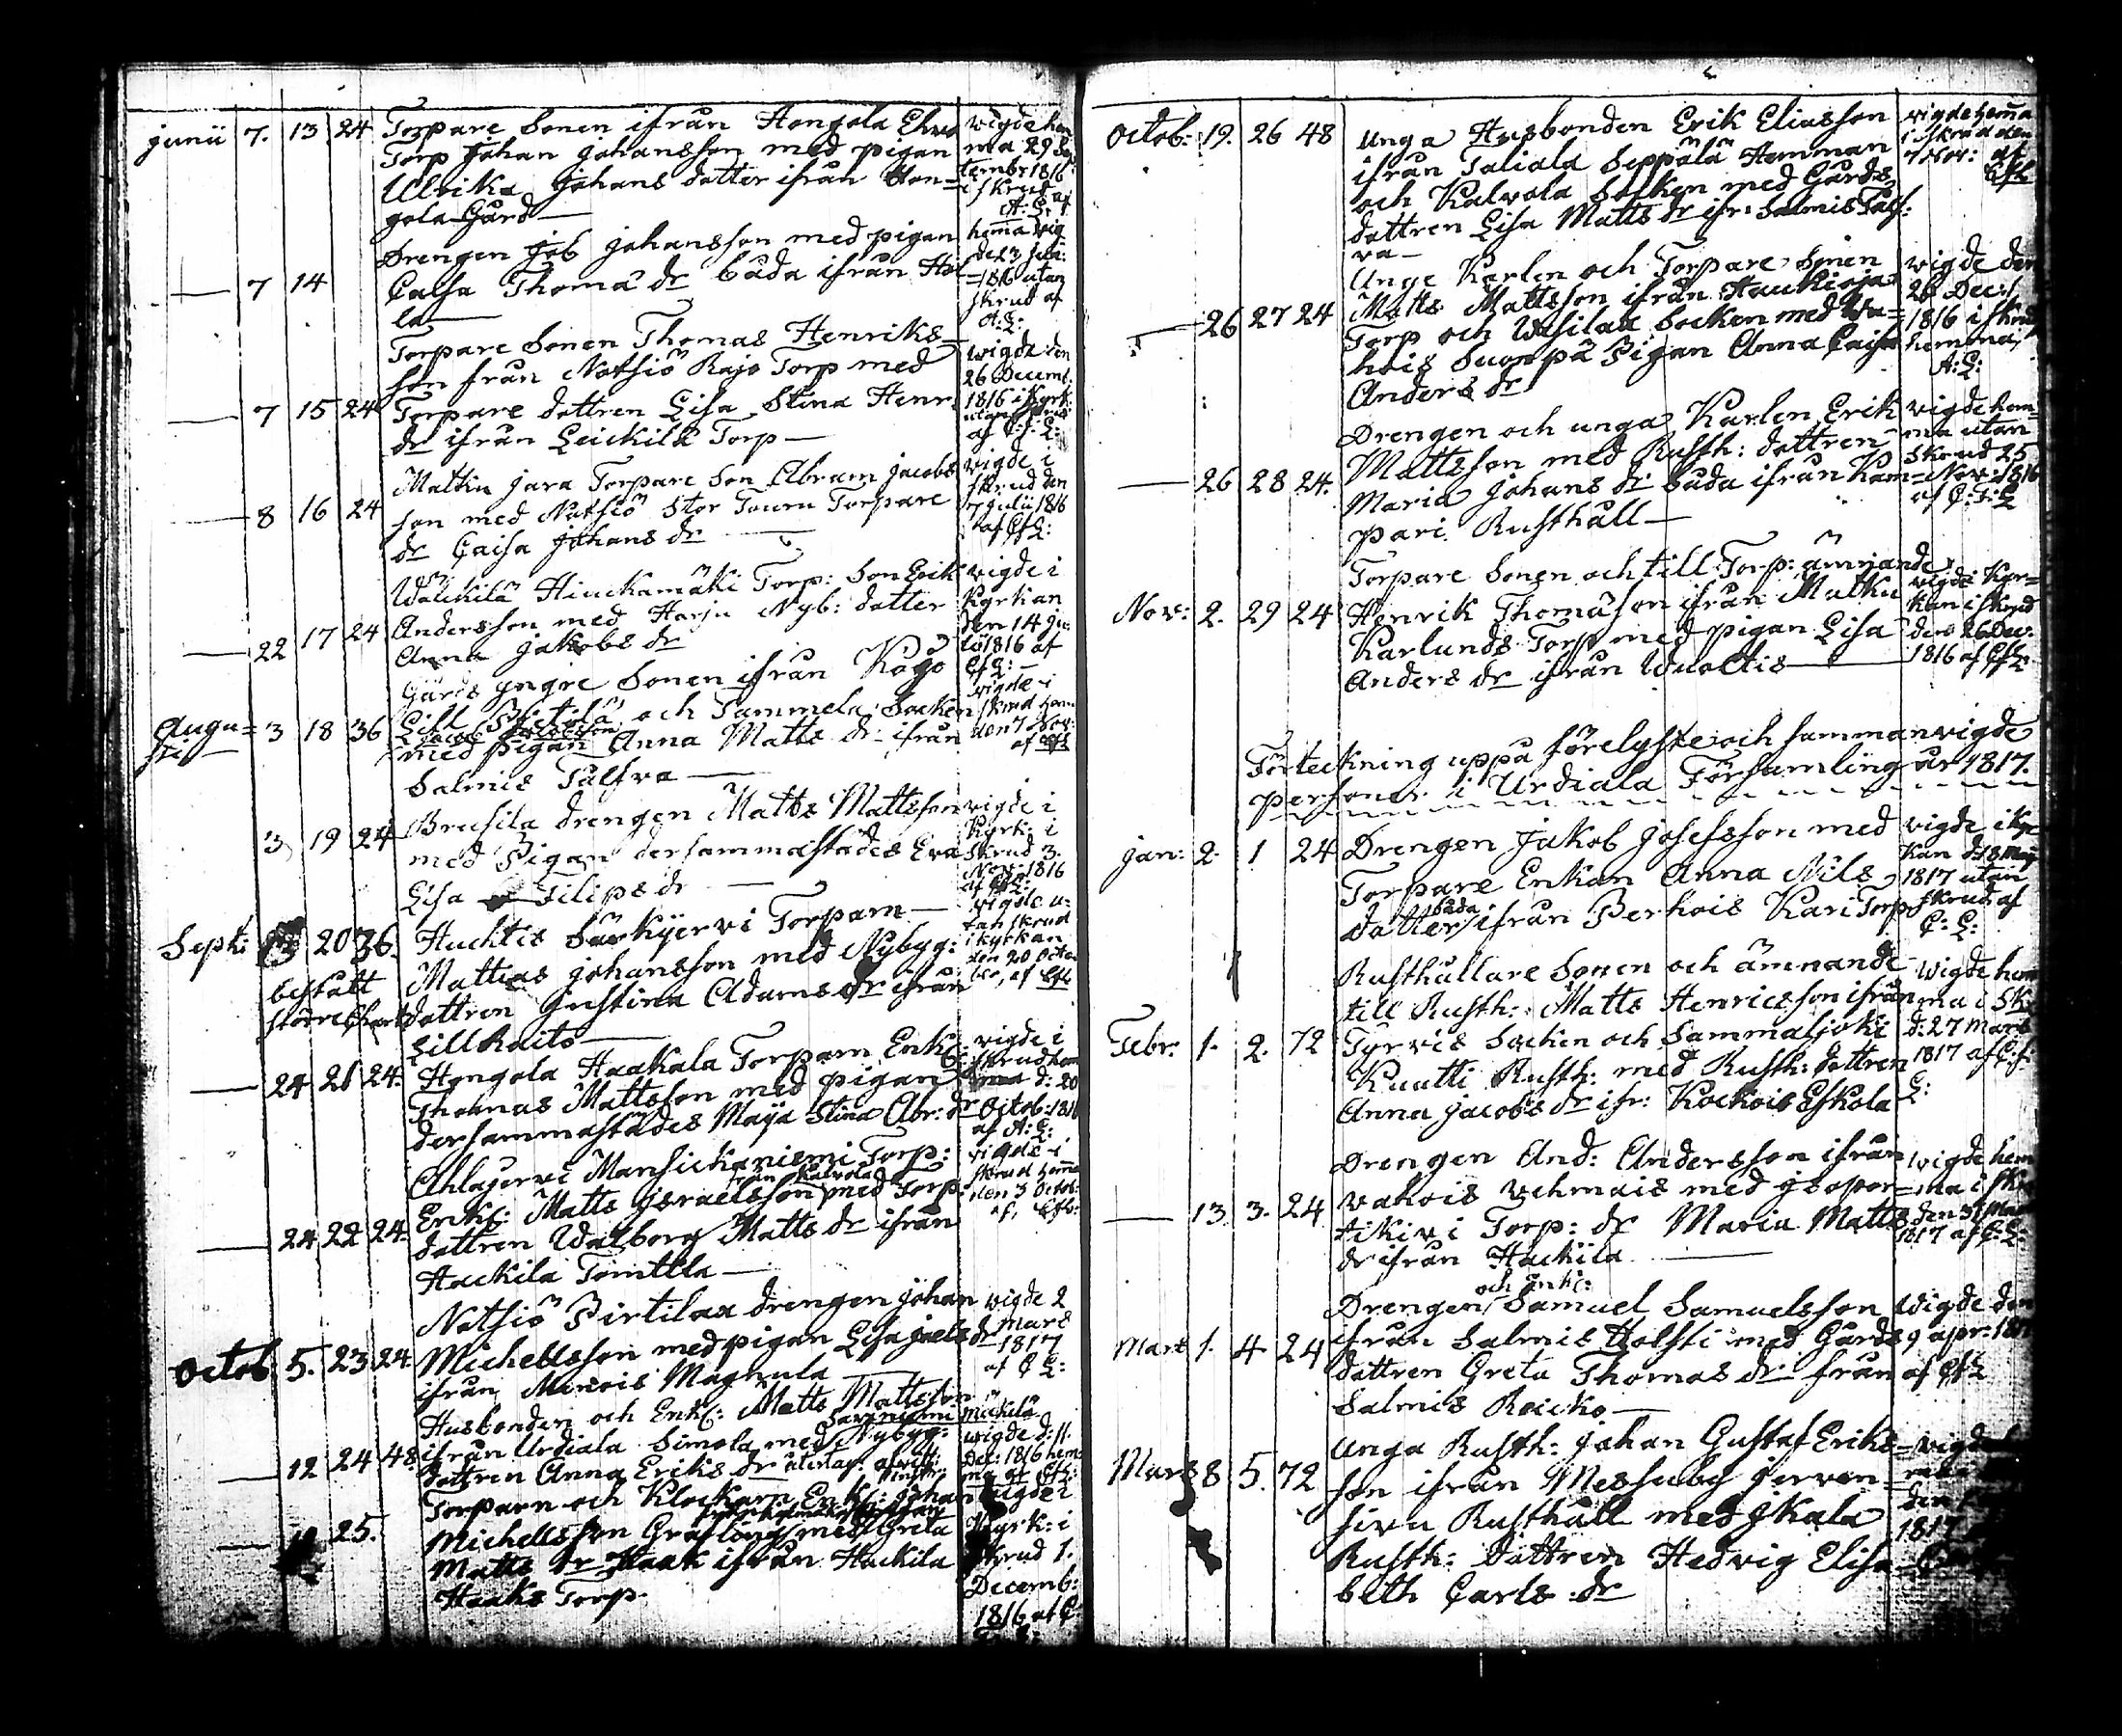 junii 7. 13 24 Torpare Sonen ifrån Hongola Ehro
Torp Johan Johansson med pigan
Ulrika Johans dotter ifrån Hon=
gola Gård —
wigde hem
ma 29 Sep
tembr 1816
i skrud af
A: L:
— 7 14 Drengen Job Johansson med pigan
Caisa Thomæ dr båda ifrån
la —
hem̅a vig
de 23 Febr:
1816 utan
skrud af
A: L:
— 7 15 24 Torpare Sonen Thomas Henriks
son från Notsiö Rajo Torp med
Torpare dottren Lisa Stina Henr:
dr ifrån Leickilä Torp —
wigde den
26 Decemb:
1816 i Kyrk:
utan skrud
af C: f: L:
— 8 16 24 Matku Jara Torpare Son Abram Jacobs
son med Notsiö Stor Tourn Torpare
dr Caisa Johans dr —
vigde i
skrud den
7 Julii 1816
af CfL:
— 22 17 24 Wälckilä Hiuckamäki Torp: Son Erik
Andersson med Harju Nyb: dotter
Anna Jakobs dr
vigde i
Kyrkan
den 14 Ju
lii 1816 af
CfL: —
Augu=
sti — 3 18 36 Gårds yngre Sonen ifrån Kojo
Lill Pietilä och Tammela Socken
Jacob Jacobsson
med Pigan Anna Matts dr ifrån
Salmis Talfva —
vigde i
skrud hem
den 7 Nov:
af CfL
3 19 24 Brusila drengen Matts Mattsson
med Pigan dersammastädes Eva
Lisa Filips dr —
vigde i
Kyrk: i
skrud 3.
Nov: 1816
af CfL:
Sept: 13 20 36. Huchtis Särkijervi Torparn —
Mattias Johansson med Nybyg:
dottren Justina Adams dr ifrån
Lill Raito —
betalt
större
vigde u=
tan skrud
i kyrkan
den 20 Octo
ber, af CfL
— 24 21 24. Hongola Haakala Torparn Enkl:
Thomas Mattsson med pigan
dersammastädes Maija Stina Abr: dr
vigde i
skrud hem
ma d: 20
Octob: 1816
af A: L:
— 24 22 24. Ahlajervi Mansickaniemi Torp:
från Kalvola
Enkl: Matts Israelsson med Torp:
dottren Walborg Matts dr ifrån
Hackila Tomttla —
vigde i
skrud hemma
den 3 Octob:
af, CfL:
Octob. 5. 23 24 Notsiö Pirtilax drengen Johan
Michellsson med pigan Lisa Joels dr
ifrån Menois Magnula —
vigde 2
Mars
1817
af C L:
— 12 24 48. Husbonden och Enkl: Matts Mattsson
ifrån Urdiala Simola med Nybyg:
dottren Anna Eriks dr
vigde d: 11.
Dec: 1816 hem
ma af CfL:
— 25. Torparn och Klockarn Enkl: Johan
Michellsson Graflöng med Greta
Matts dr Haak ifrån Hackila
Haaks Torp
vigde i
Kyrk: i
skrud 1.
Decemb:
1816 af C
Octob: 19. 26 48 Unga Husbonden Erik Eliasson
ifrån Taliala Seppälä Hemman
och Kalvola Socken med Gårds
dottren Lisa Matts dr ifr: Salmis Talf:
va —
vigde hem̅a
i skrud den
7 Nov: af
CfL
— 26 27 24 Unge Karlen och Torpare Sonen
Matts Mattsson ifrån Hauckioja
Torp och Wesilax Socken med Wa=
hois Suonpä Pigan Anna Caisa
Anders dr
vigde den
26 Dec:
1816 i skrud
hemma,
A: L:
— 26 28 24. Drengen och unga Karlen Erik
Mattsson med Rusth: dottren
Maria Johans dr båda ifrån Kam=
pari Rusthåll —
vigde hem=
ma utan
skrud 25
Nov: 1816
af C: F: L
Nov: 2. 29 24 Torpare Sonen och till Torp: ämnande
Henrik Thomasson ifrån Matku
Karlunds Torp med pigan Lisa
Anders dr ifrån Wuoltis —
vigde i Kyr=
kan i skrud
den 26 Dec:
1816 af CfL:
Förteckning uppå förelyste och sammanvigde
personer i Urdiala Församling år 1817.
Jan: 2. 1 24 Drengen Jakob Josefsson med
Torpare Enkan Anna Nils
båda
dotter ifrån Perhois Kari Torp
vigde i Kyr
kan d: 18 Maij
1817 utan
skrud af
C: L:
Febr. 1. 2. 72 Rusthållare Sonen och ämnande
till Rusth: Matts Henricsson ifrån
Tyrvis Socken och Sammaljoki
Kuatti Rusth: med Rusth: dottren
Anna Jacobs dr ifr: Kockois Eskola
vigde hem
ma i Skr
d: 27 Mars
1817 af C: f:
L:
— 13 3. 24 Drengen And: Andersson ifrån
Vahois Vehmais med Isopor=
tikivi Torp: dr Maria Matts
dr ifrån Hackila —
vigde hem
ma i skr
den 31 Mar
1817 af C: L:
och Enkl:
Mart 1. 4 24 Drengen Samuel Samuelsson
ifrån Salmis Holsti med Gårds
dottren Greta Thomas dr från
Salmis Roicko —
vigde den
9 apr: 1817
af CfL
Mars 8 5. 72 Unga Rusth: Johan Gustaf Eriks=
son ifrån Messuby Jerven=
sivu Rusthåll med Skala
Rusth: dottren Hedvig Elisa=
beth Carls dr
vigde
den
1817